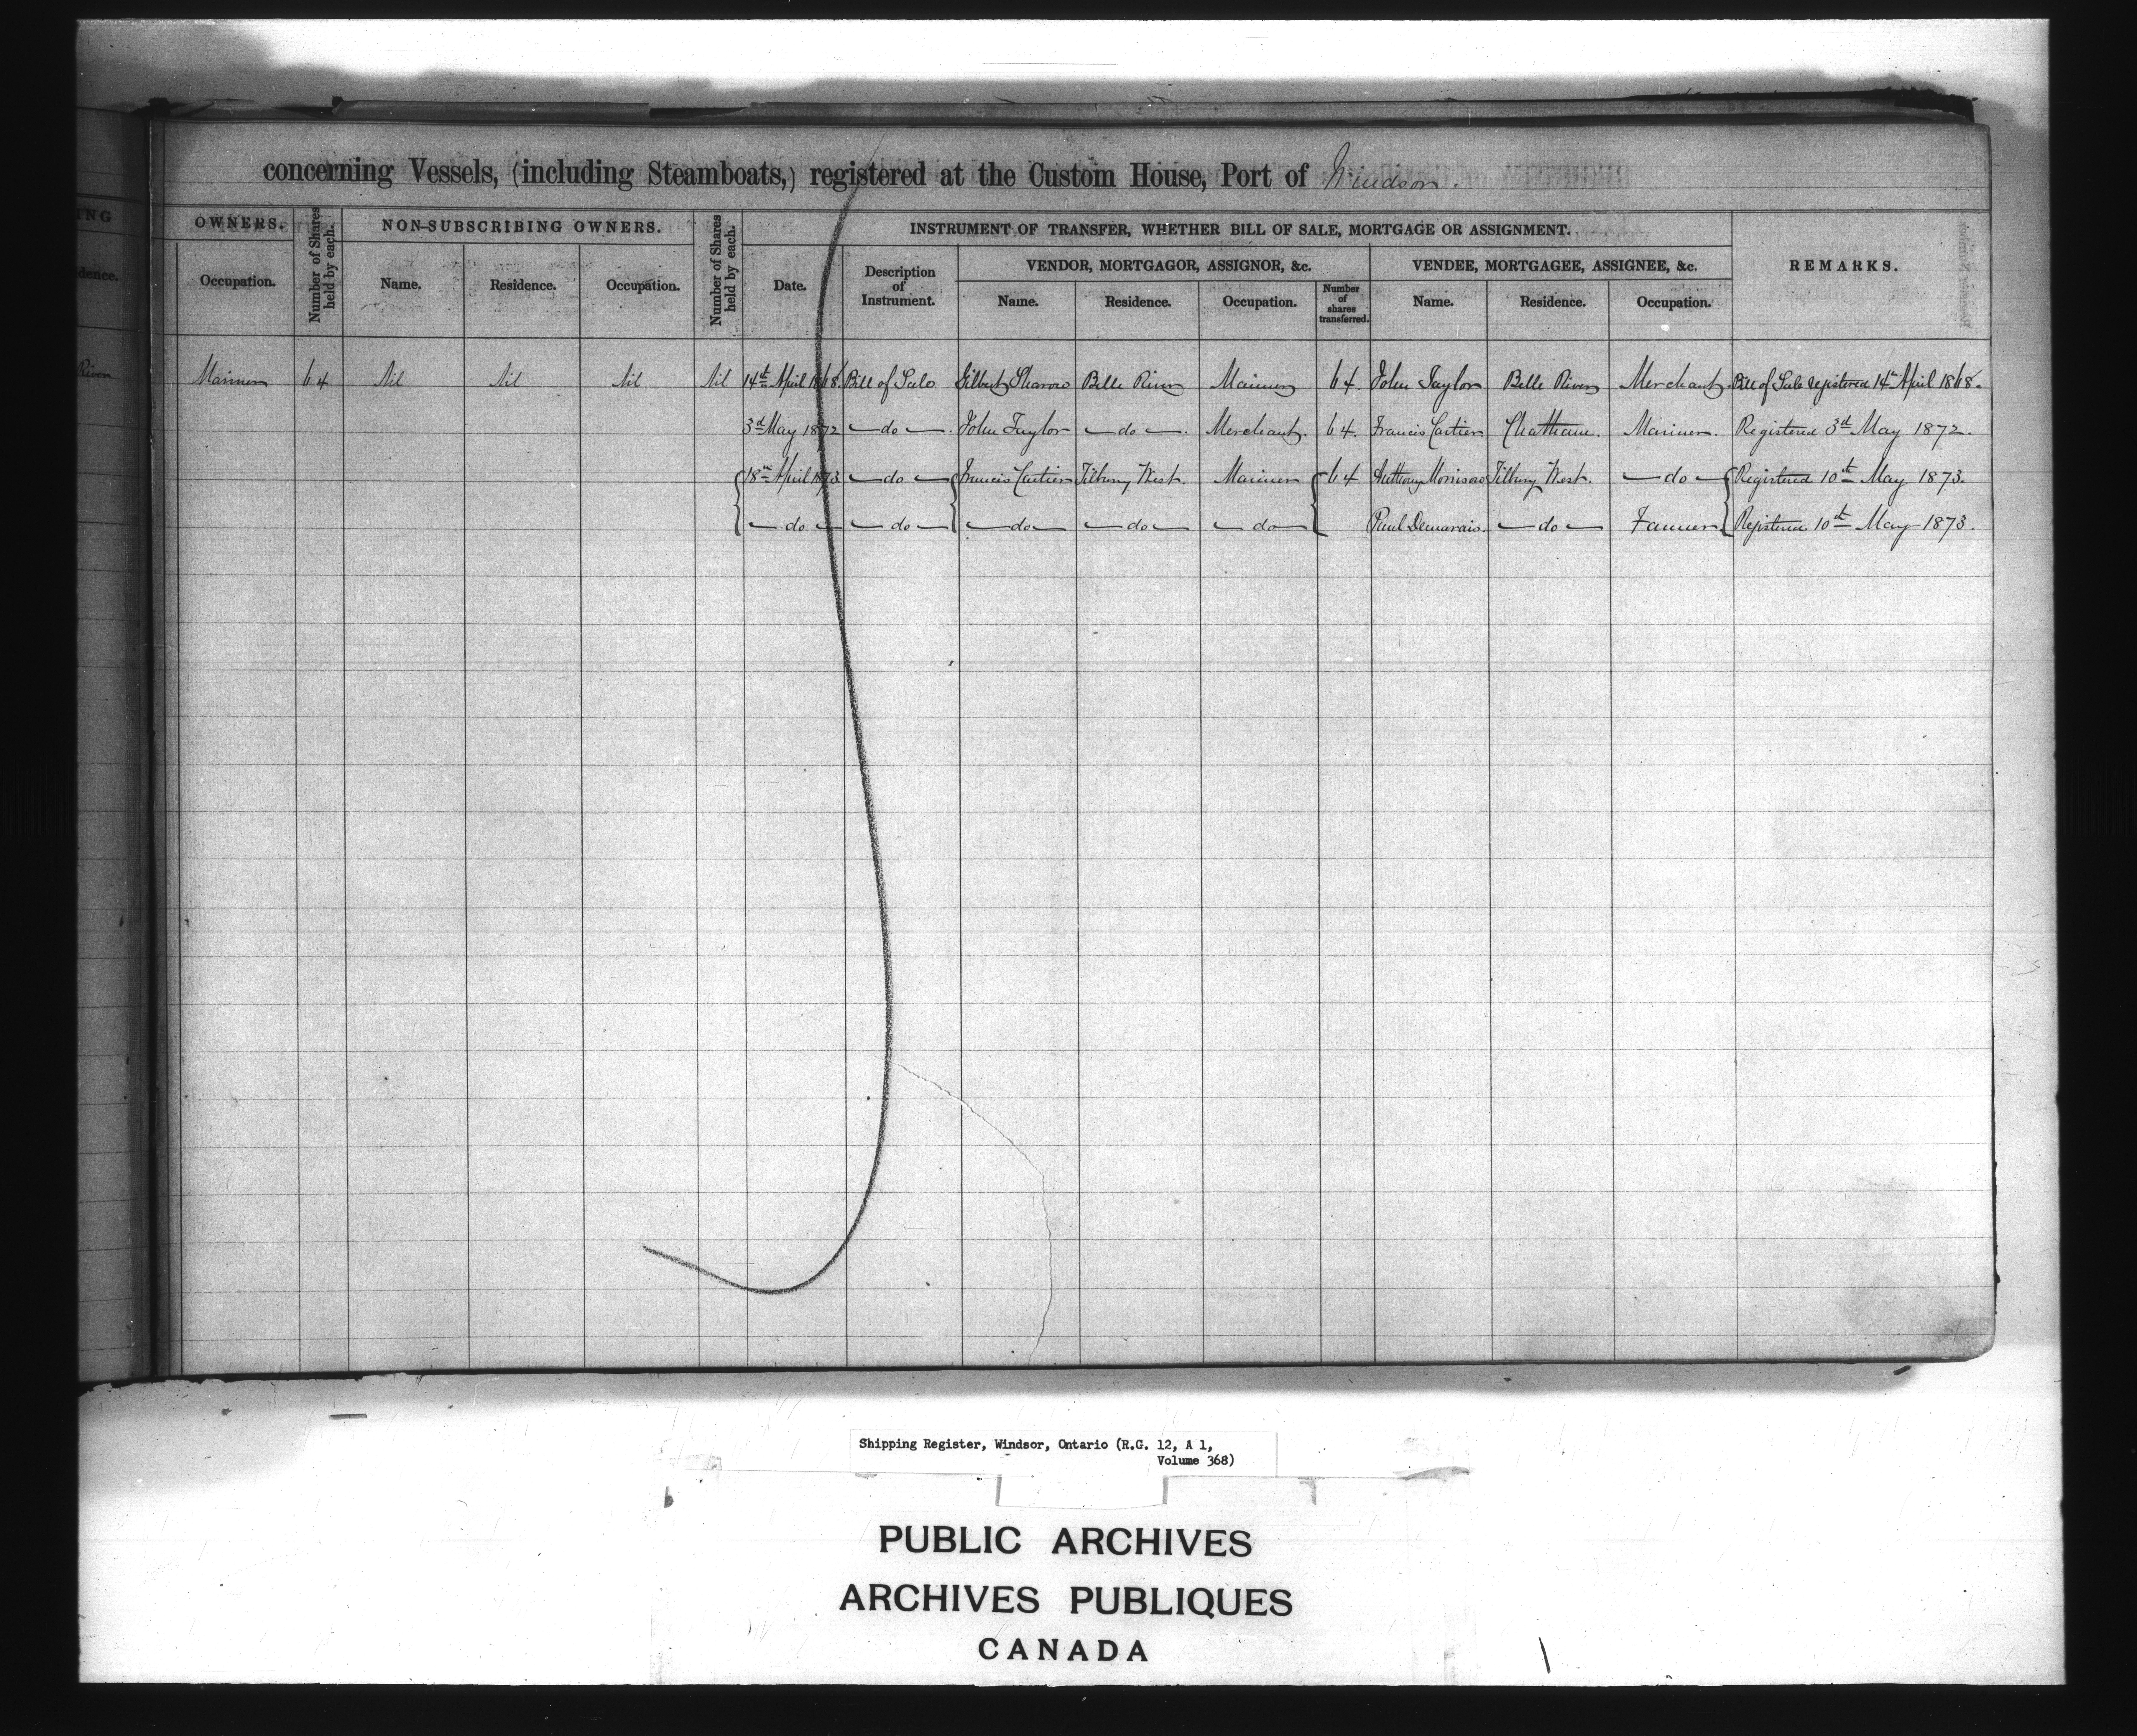 concerning Vessels, (including Steamboats,) registered at the Custom House, Port of Windsor.
ING
dence.
River
OWNERS.
Occupation.
Number of Shares held by each.
NON-SUBSCRIBING OWNERS.
Name. Residence. Occupation.
Number of Shares held by each.
INSTRUMENT OF TRANSFER, WHETHER BILL OF SALE, MORTGAGE OR ASSIGNMENT.
Date.
Description of Instrument.
VENDOR, MORTGAGOR, ASSIGNOR, &c.
Name. Residence. Occupation.
Number of shares transferred.
VENDEE, MORTGAGEE, ASSIGNEE, &c.
Name. Residence. Occupation.
REMARKS.
Mariner 64 Nil Nil Nil Nil 14th April 1868. Bill of Sale Gilbert Sharow Belle River Mariner 64. John Taylor Belle River Merchant. Bill of Sale registered 14th April 1868.
3rd May 1872 —do—. John Taylor —do—. Merchant. 64. Francis Cartier Chatham. Mariner. Registered 3rd May 1872.
18th April 1873 —do— Francis Cartier Tilbury West. Mariner 64 Anthony Morrison Tilbury West. —do— Registered 10th May 1873.
—do— —do— —do— —do— —do— Paul Demarais. —do— Farmer. Registered 10th May 1873.
Shipping Register, Windsor, Ontario (R.G. 12, A 1,
Volume 368)
PUBLIC ARCHIVES
ARCHIVES PUBLIQUES
CANADA